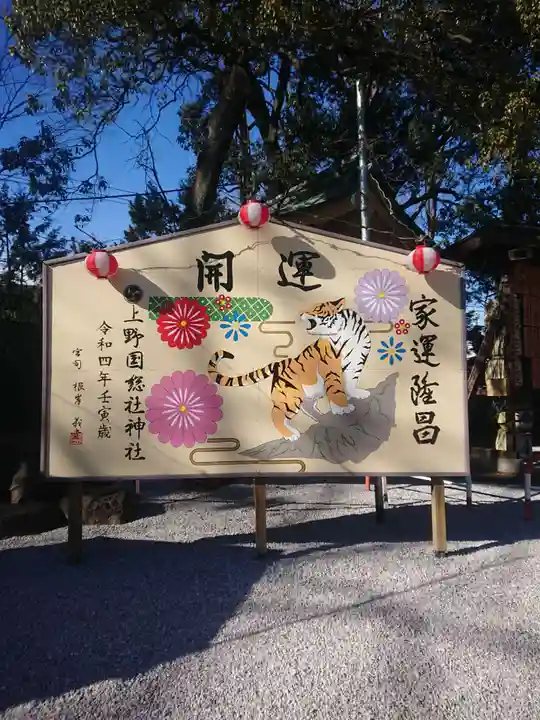 開運
家運隆昌
上野国総社神社
令和四年壬寅歳
宮司 根岸